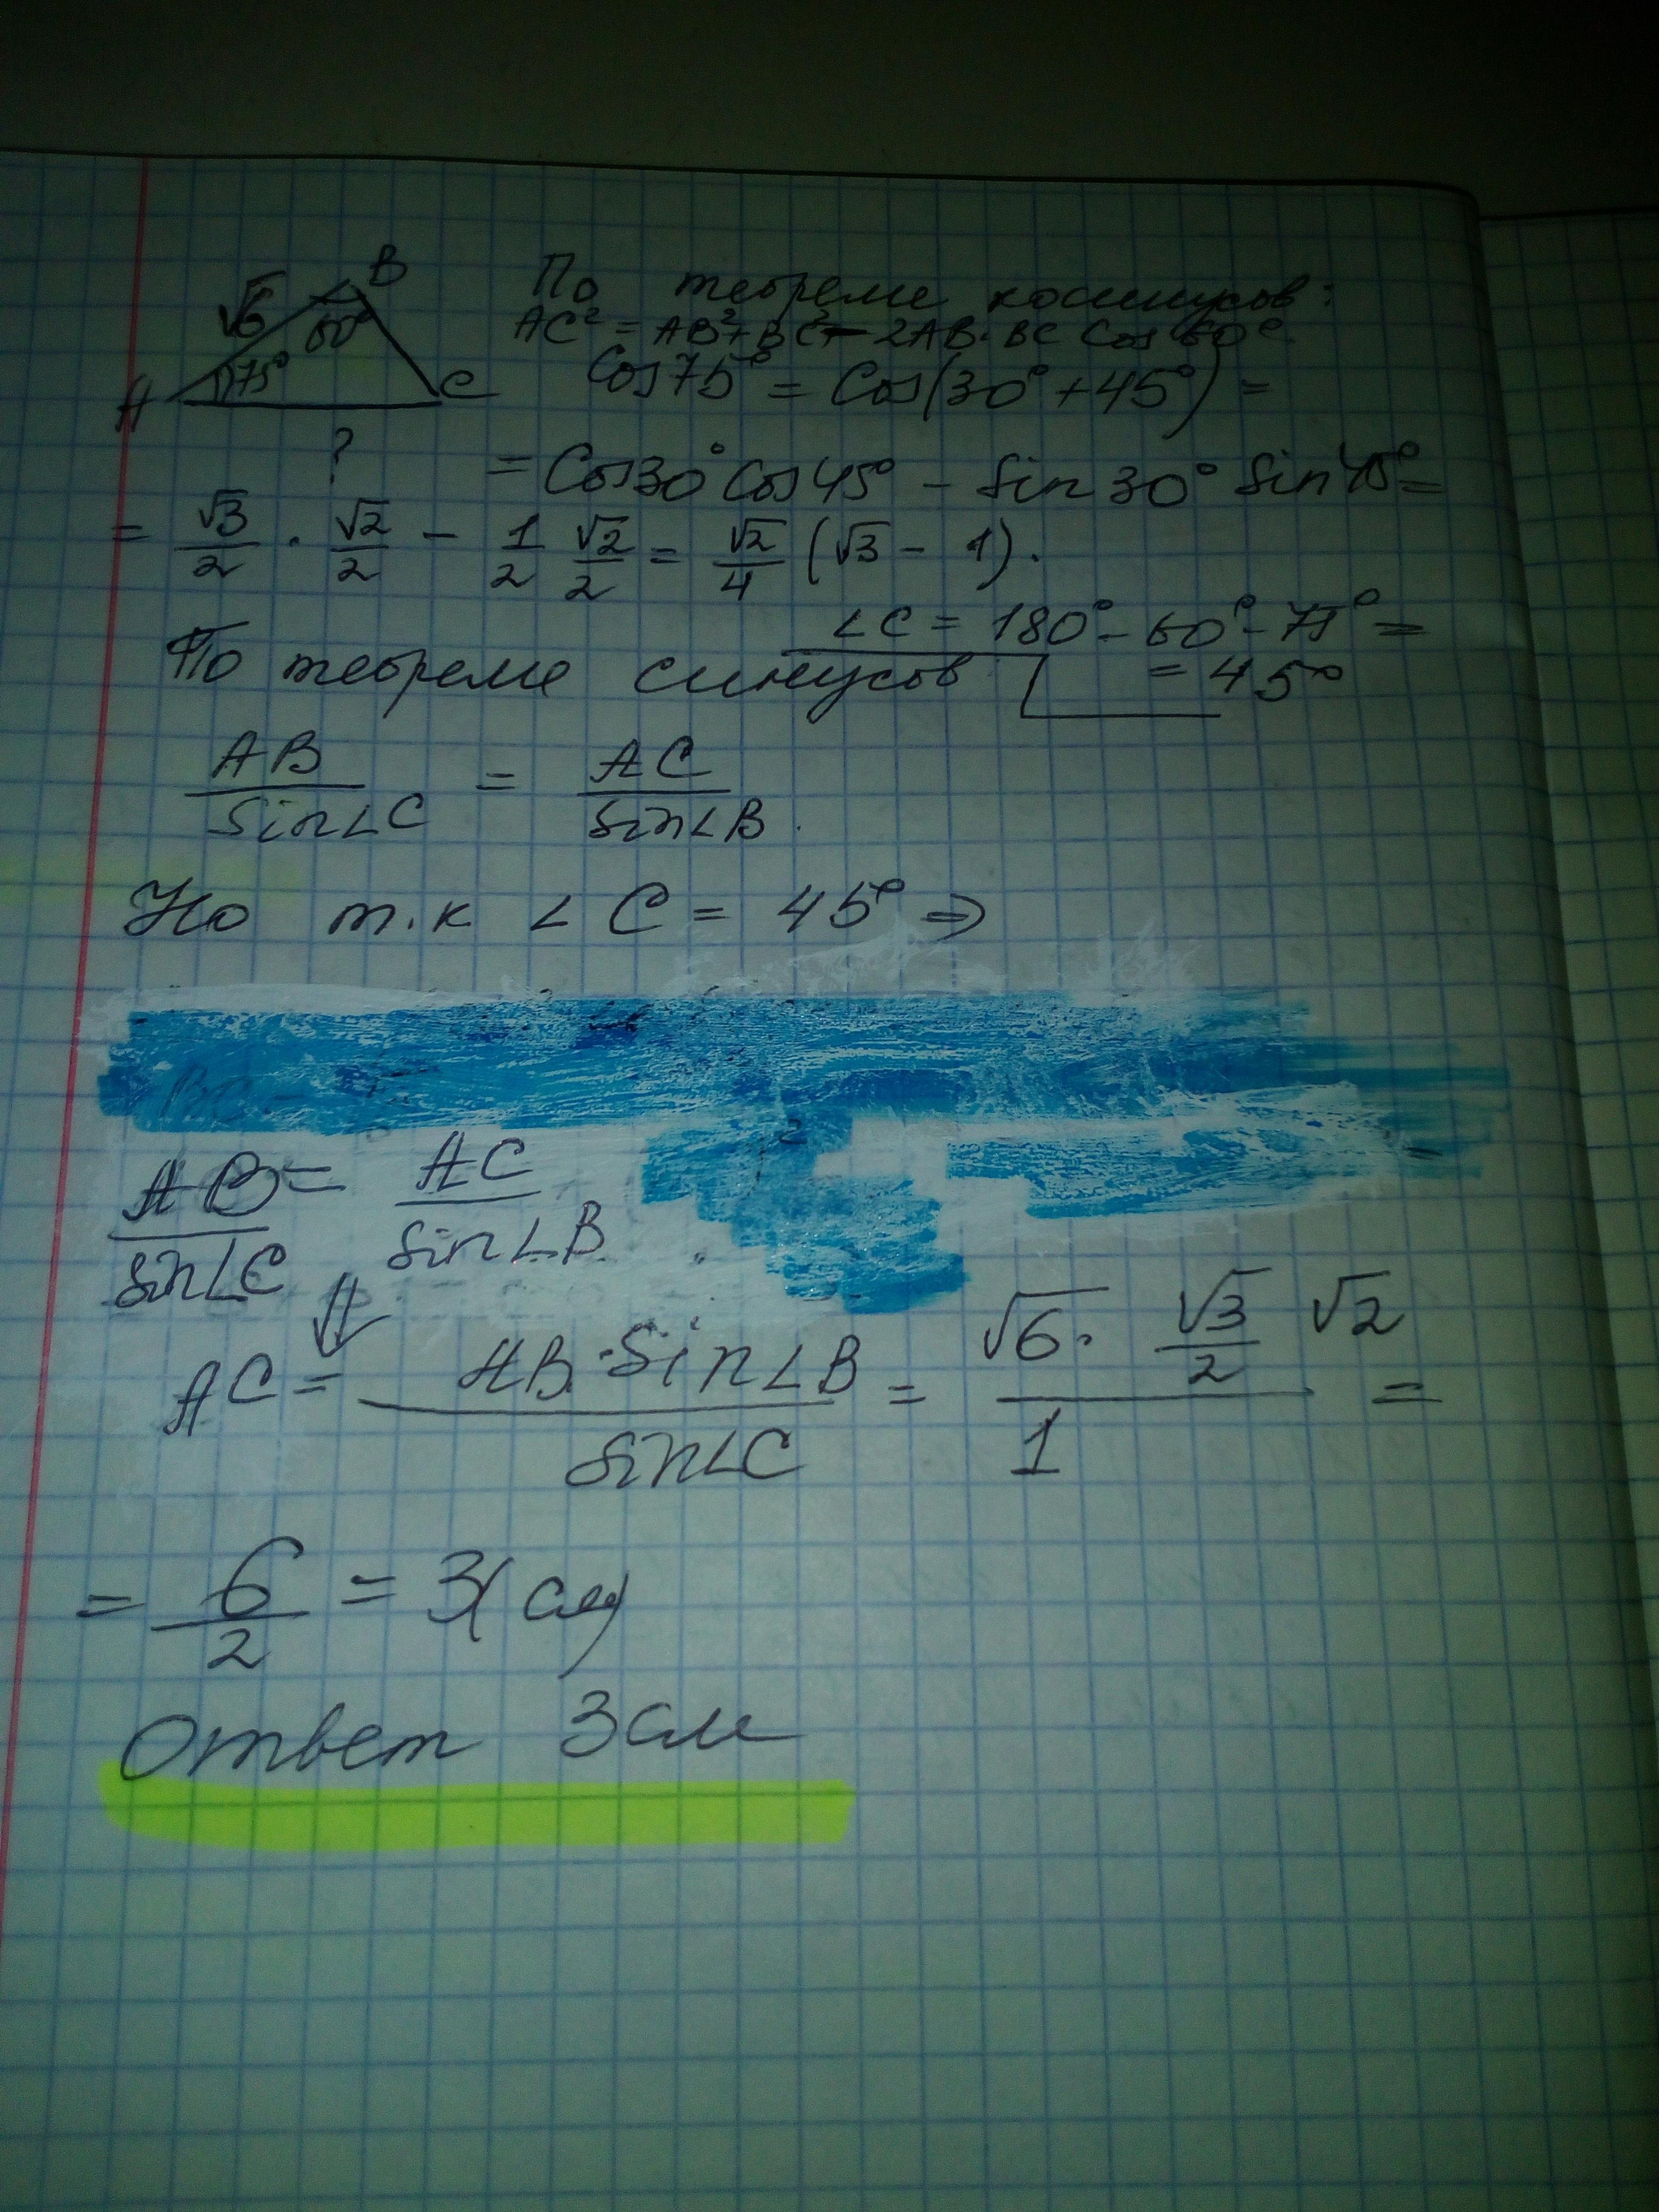 B
√6
60°
75°
A
C
?
По теореме косинусов:
AC² = AB² + BC² - 2AB·BC Cos 60°
Cos75° = Cos(30° + 45°) =
= Cos30° Cos45° - Sin30° Sin45° =
= √3/2 · √2/2 - 1/2 √2/2 = √2/4 (√3 - 1).
∠C = 180° - 60° - 75° =
= 45°
По теореме синусов
AB/Sin∠C = AC/Sin∠B.
Но т.к ∠C = 45° ⇒
AB/Sin∠C = AC/Sin∠B
⇓
AC = AB·Sin∠B/Sin∠C = √6· √3/2 √2/1 =
= 6/2 = 3(см)
Ответ 3см